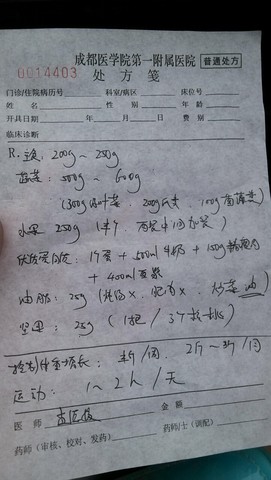 成都医学院第一附属医院 普通处方
0014403 处方笺
门诊/住院病历号 科室/病区 床位号
姓名 性别 年龄
开具日期 年 月 日 费别
临床诊断
R. 主食: 200g ~ 250g
蔬菜: 500g ~ 600g
(300g 叶菜, 200g 瓜类, 100g 菌藻类)
水果 250g (1个, 两餐中间加餐)
优质蛋白质: 1个蛋 + 500ml牛奶 + 150g
+ 400ml豆浆
油脂: 25g ( x, 肥肉x, 炒菜油)
坚果: 25g (1把 / 3个核桃)
控制体重增长: 半斤/周, 2斤~3斤/月
运动: 1~2h/天
医师 金额
药师(审核、校对、发药) 药师/士(调配)